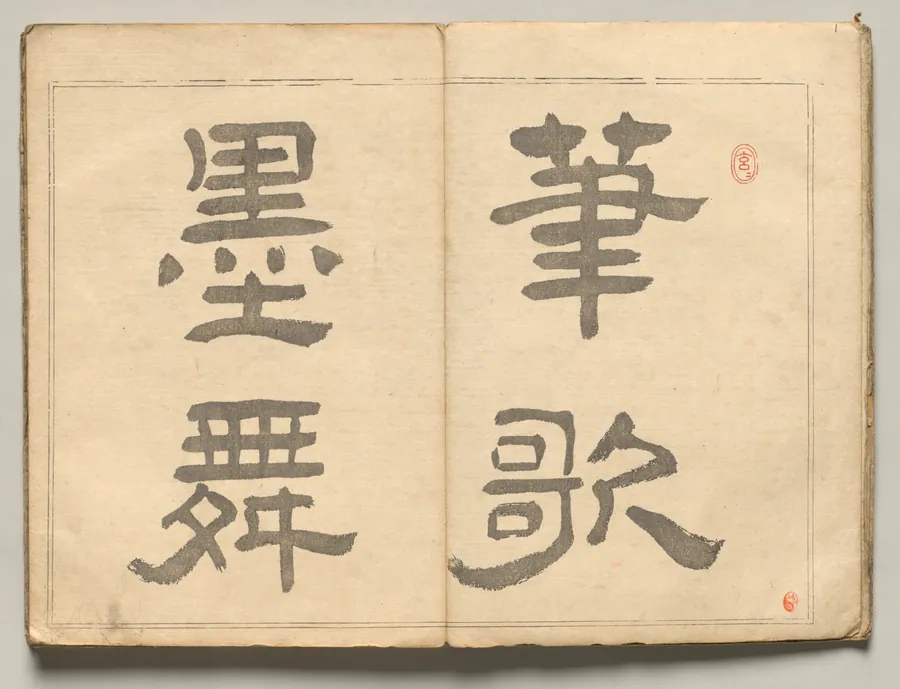 筆歌
墨舞